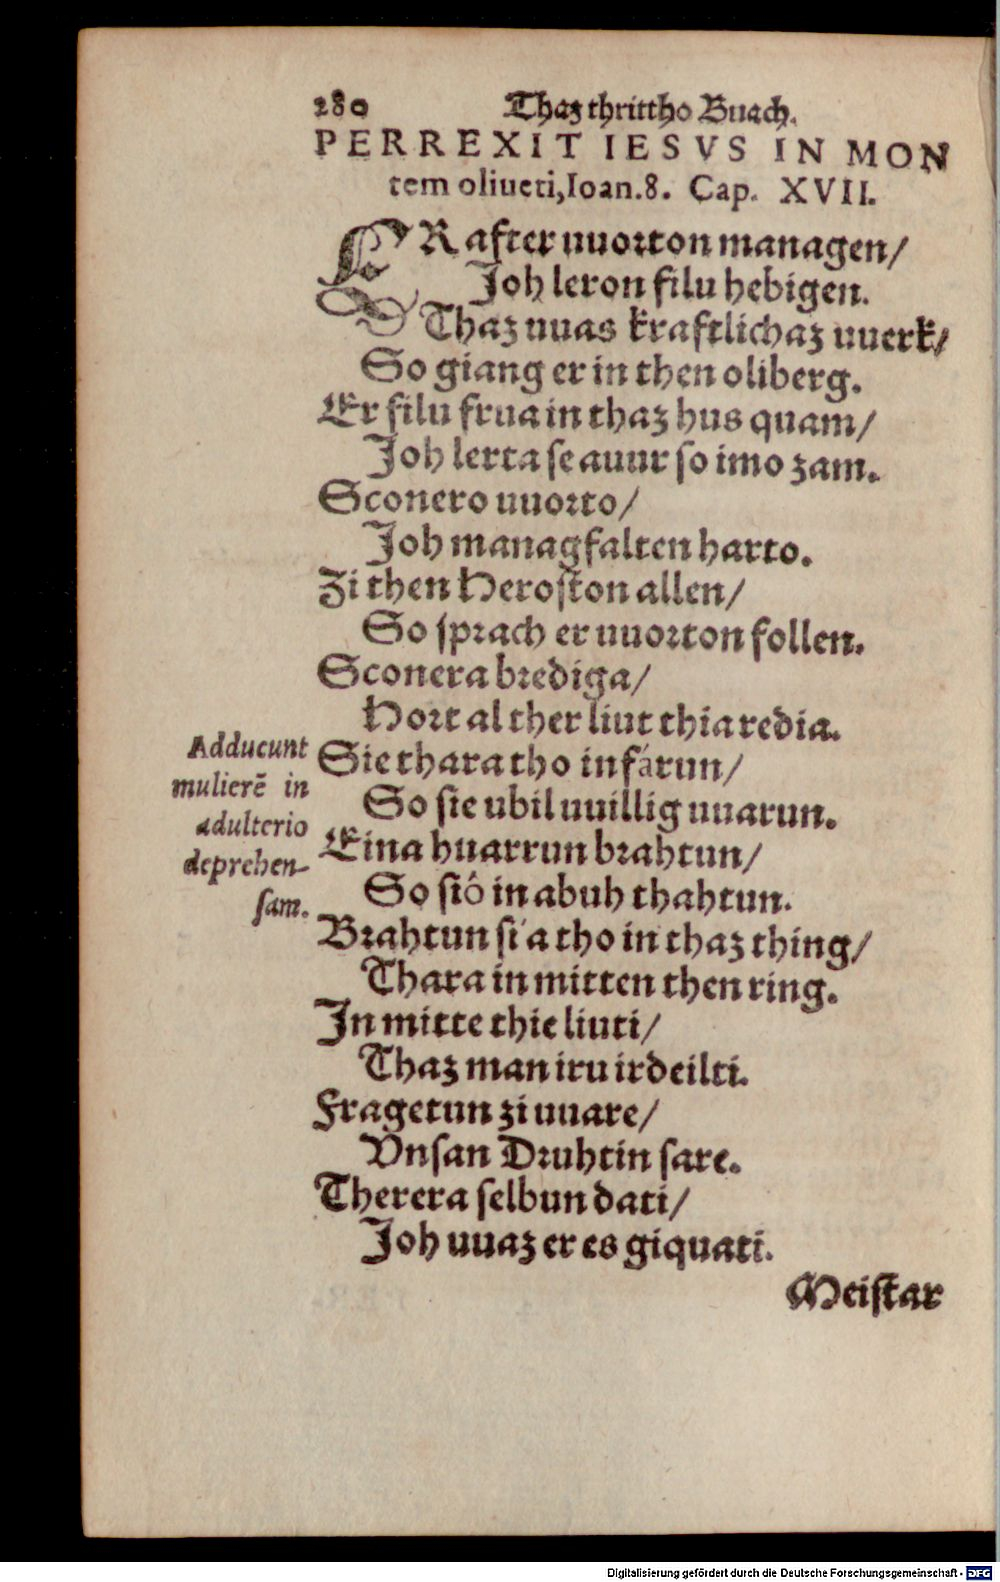 280 Thaz thrittho Buach.
PERREXIT IESVS IN MON
tem oliueti, Ioan. 8. Cap. XVII.
ER after uuorton managen/
Joh leron filu hebigen.
Thaz uuas kraftlichaz uuerk/
So giang er in then oliberg.
Er filu frua in thaz hus quam/
Joh lerta se auur so imo zam.
Sconero uuorto/
Joh managfalten harto.
Zi then Heroston allen/
So sprach er uuorton follen.
Sconera brediga/
Hort al ther liut thia redia.
Sie thara tho in fárun/
So sie ubil uuillig uuarun.
Eina huarrun brahtun/
So siô in abuh thahtun.
Brahtun si'a tho in thaz thing/
Thara in mitten then ring.
In mitte thie liuti/
Thaz man iru irdeilti.
Fragetun zi uuare/
Vnsan Druhtin sare.
Therera selbun dati/
Joh uuaz er es giquati.
Meistar
Adducunt
mulierẽ in
adulterio
deprehen-
sam.
Digitalisierung gefördert durch die Deutsche Forschungsgemeinschaft - DFG